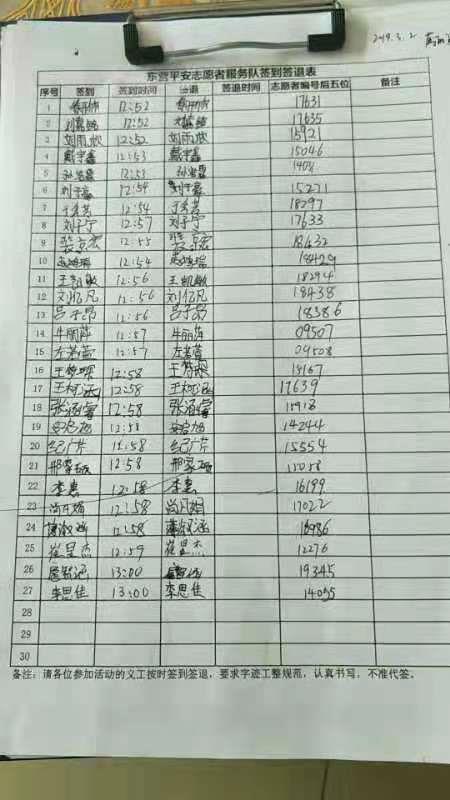 2019.3.2
东营平安志愿者服务队签到签退表
序号 签到 签到时间 签退 签退时间 志愿者编号后五位 备注
1 12:52 17631
2 刘嘉 12:52 17635
3 刘雨欣 12:52 刘雨欣 15921
4 戴宇鑫 12:53 戴宇鑫 15046
5 12:53
6 刘子 12:54 15271
7 于秀芳 12:54 于秀芳 18297
8 刘子宁 12:57 刘子宁 17633
9 裴京宏 12:55 裴京宏 18432
10 12:54 18429
11 王凯敏 12:56 王凯敏 18294
12 刘亿凡 12:56 刘亿凡 18438
13 吕子昂 12:56 吕子昂 18386
14 牛丽萍 12:57 牛丽萍 09507
15 左若萱 12:57 左若萱 09508
16 王梦琛 12:58 王梦琛 15167
17 王柯涵 12:58 王柯涵 17639
18 张涵睿 12:58 张涵睿 15918
19 12:58 14244
20 纪广芹 12:58 纪广芹 15554
21 邢家 12:58 邢家
22 李惠 12:58 李惠 16199
23 尚凡娟 12:58 尚凡娟 17022
24 12:58 18986
25 崔昱杰 12:59 崔昱杰 12276
26 13:00 19345
27 李思佳 13:00 李思佳 14055
28
29
30
备注：请各位参加活动的义工按时签到签退，要求字迹工整规范，认真书写，不准代签。